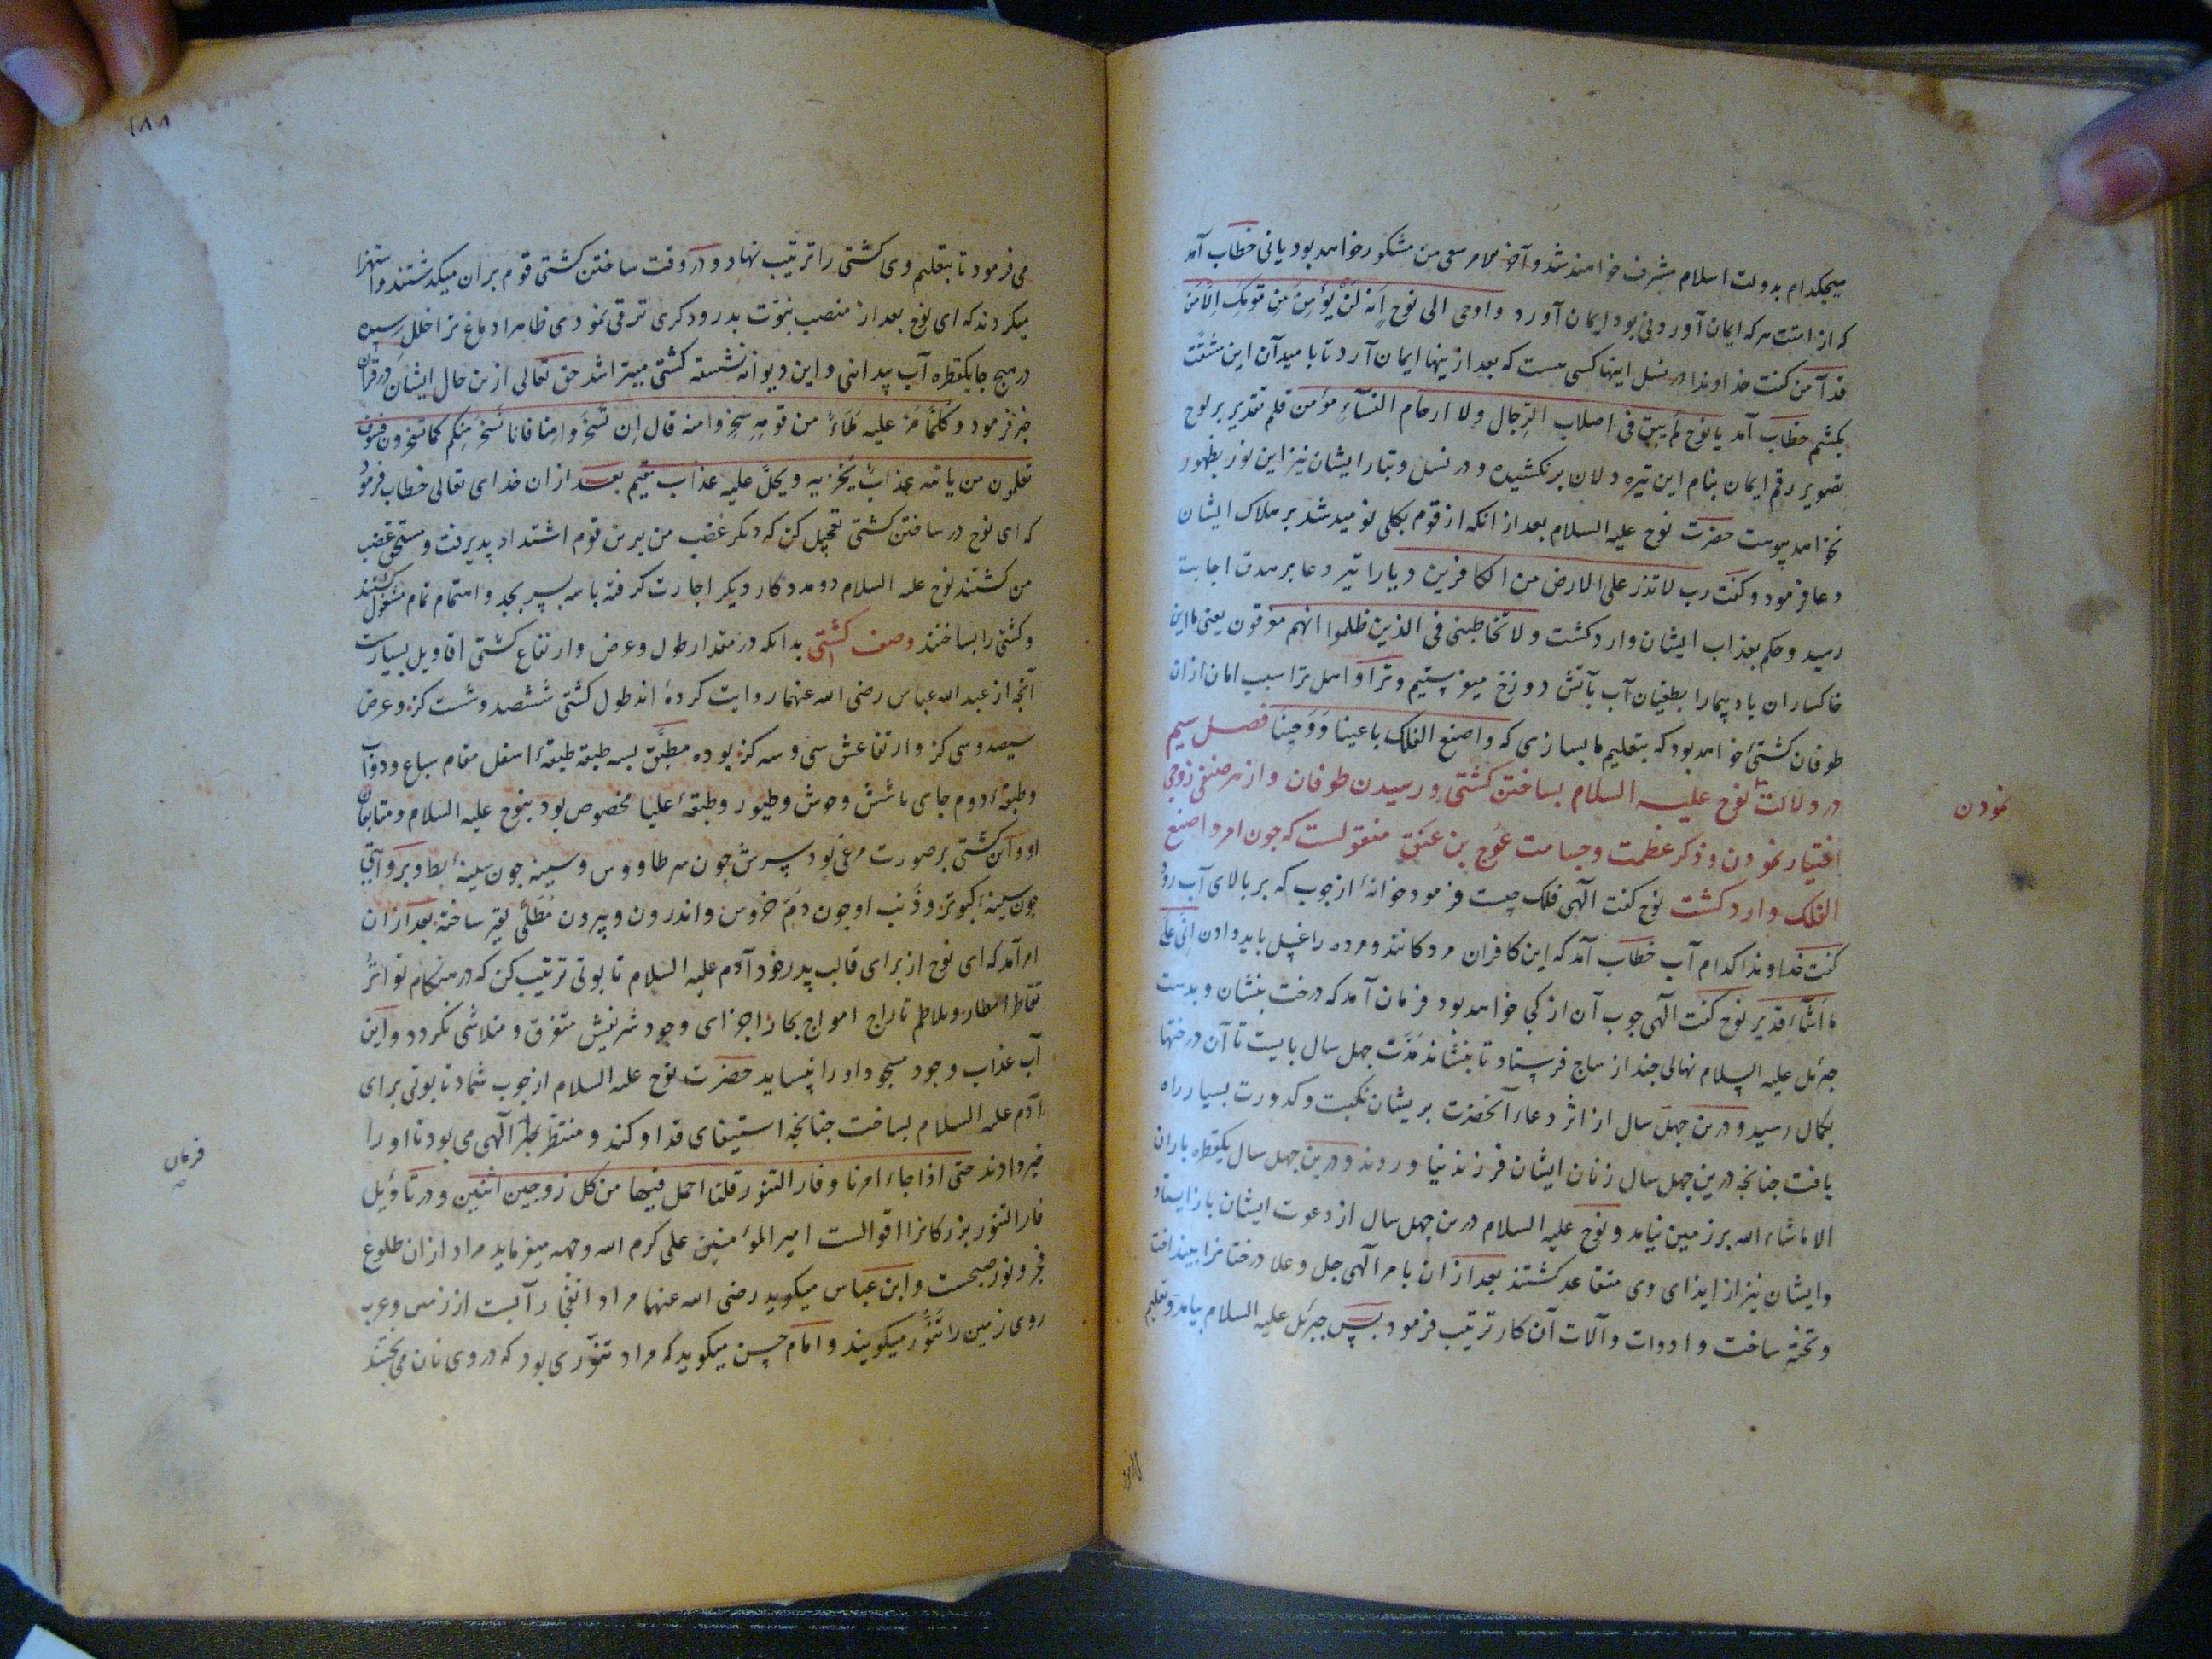 هیچکدام بدولت اسلام مشرف خواهند شد و آخر الامر سعی من مشکور خواهد بود یانی خطاب آمد
که از امتت هر که ایمان آوردنی بود ایمان آورد و اوحی الی نوح اَنه لَنْ یُؤمِنَ مِن قومِکَ اِلّا مَن
قد آمن کفت خداوندا در نسل اینها کسی هست که بعد ازینها ایمان آرد تا بامید آن این مشقت
بکشم خطاب آمد یا نوح لم یبق فی اصلاب الرجال ولا ارحام النسآءِ مؤمن قلم تقدیر بر لوح
تصویر رقم ایمان بنام این تیره دلان بر نکشیده و در نسل و تبار ایشان نیز این نور بظهور
نخواهد پیوست حضرت نوح علیه السلام بعد از انکه از قوم بکلی نومید شد بر هلاک ایشان
دعا فرمود و کفت رب لا تذر علی الارض من الکافرین دیارا تیر دعا بر هدف اجابت
رسید و حکم بعذاب ایشان وارد کشت و لا تخاطبنی فی الذین ظلموا انهم مغرقون یعنی ما این
خاکساران باد پیما را بطغیان آب بآتش دوزخ میفرستیم و ترا و اهل ترا سبب امان از ان
طوفان کشتیٔ خواهد بود که بتعلیم ما بسازی که واصنع الفلک باعیننا وَوَحینَا فصل سیم
در دلالت نوح علیه السلام بساختن کشتی و رسیدن طوفان و از هر صنفی زوجی
نمودن
اختیار نمودن و ذکر عظمت و جسامت عوج بن عنق منقولست که چون امر واصنع
الفلک وارد کشت نوح کفت الهی فلک چیست فرمود خانهٔ از جوب که بر بالای آب رود
کفت خداوندا کدام آب خطاب آمد که این کافران مردکانند و مرده را غسل باید دادن انی علی
ما اشآء قدیر نوح کفت الهی جوب آن از کجا خواهد بود فرمان آمد که درخت بنشان و بدست
جبرئل علیه السلام نهالی جند از ساج فرستاد تا بنشاند مُدَّت جهل سال بایست تا آن درختها
بکمال رسید و درین جهل سال از اثر دعاء آنحضرت بریشان نکبت و کدورت بسیار راه
یافت جنانجه درین جهل سال زنان ایشان فرزند نیاوردند و درین جهل سال یکقطره باران
الا ماشاء الله بر زمین نیامد و نوح علیه السلام درین جهل سال از دعوت ایشان باز ایستاد
و ایشان نیز از ایذای وی متقاعد کشتند بعد از ان بامر الهی جل و علا درختانرا بینداخت
و تخته ساخت و ادوات و آلات آن کار ترتیب فرمود پس جبرئل علیه السلام بیامد و تعلیم
۱۸۸
می فرمود تا بتعلیم وی کشتی را ترتیب نهاد و در وقت ساختن کشتی قوم بران میکذشتند و استهزا
میکردند که ای نوح بعد از منصب نبوّت بدرودکری ترقی نمودی ظاهرا دماغ ترا خلل رسیده
در هیچ جا یکقطره آب پیدا نی و این دیوانه نشسته کشتی میتراشد حق تعالی ازین حال ایشان در قرآن
خبر فرمود و کُلّمَا مَرّ علیه مَلَاءٌ من قومِهِ سَخِروا منه قال اِن تَسْخَروا مِنا فانا نَسخَرُ مِنکم کما تسخرون فسوف
تعلمون من یاتیه عذابٌ یُخزیه و یحلّ علیه عذاب مقیم بعد ازان خدای تعالی خطاب فرمود
که ای نوح در ساختن کشتی تعجیل کن که دیکر غضب من برین قوم اشتداد پذیرفت و مستحق غضب
من کشتند نوح علیه السلام دو مددکار دیکر اجارت کرفته با سه پسر بجد و اهتمام تمام مشغول کشتند
و کشتی را بساختند وصف کشتی بدانکه در مقدار طول و عرض و ارتفاع کشتی اقاویل بسیارست
آنچه از عبد الله عباس رضی الله عنهما روایت کردهٔ اند طول کشتی ششصد و شست کز و عرض
سیصد و سی کز و ارتفاعش سی و سه کز بوده مطبّق بسه طبقه طبقهٔ اسفل مقام سباع و دواب
و طبقهٔ دوم جای باشش وحوش و طیور و طبقهٔ علیا مخصوص بود بنوح علیه السلام و متابعان
او و آن کشتی بر صورت مرغی بود سرش چون سر طاووس و سینه جون سینهٔ بط و بروآیتی
جون سینهٔ کبوتر و ذَنَب او جون دُم خروس و اندرون و بیرون مُطَلّی بقیر ساخته بعد ازان
امر آمد که ای نوح از برای قالب پدر خود آدم علیه السلام تابوتی ترتیب کن که در هنکام تواتر
تقاطر امطار و تلاطم تاراج امواج بحار اجزای وجود شریفش متفرق و متلاشی نکردد و این
آب عذاب وجود مسجود او را نپساید حضرت نوح علیه السلام از جوب شمشاد تابوتی برای
آدم علیه السلام بساخت جنانجه استیفای قد او کند و منتظر امر الهی می بود تا او را
فرمان
خبر دادند حتی اذا جاء امرنا و فار التنور قلنا احمل فیها من کل زوجین اثنین و در تأویل
فار التنور بزرکانرا اقوالست امیر المؤمنین علی کرم الله وجهه میفرماید مراد ازان طلوع
فجر و نور صبحست و ابن عباس میکوید رضی الله عنهما مراد انفجار آبست از زمین و عرب
روی زمین را تنّور میکویند و امام حسن میکوید که مراد تنّوری بود که در وی نان می پختند